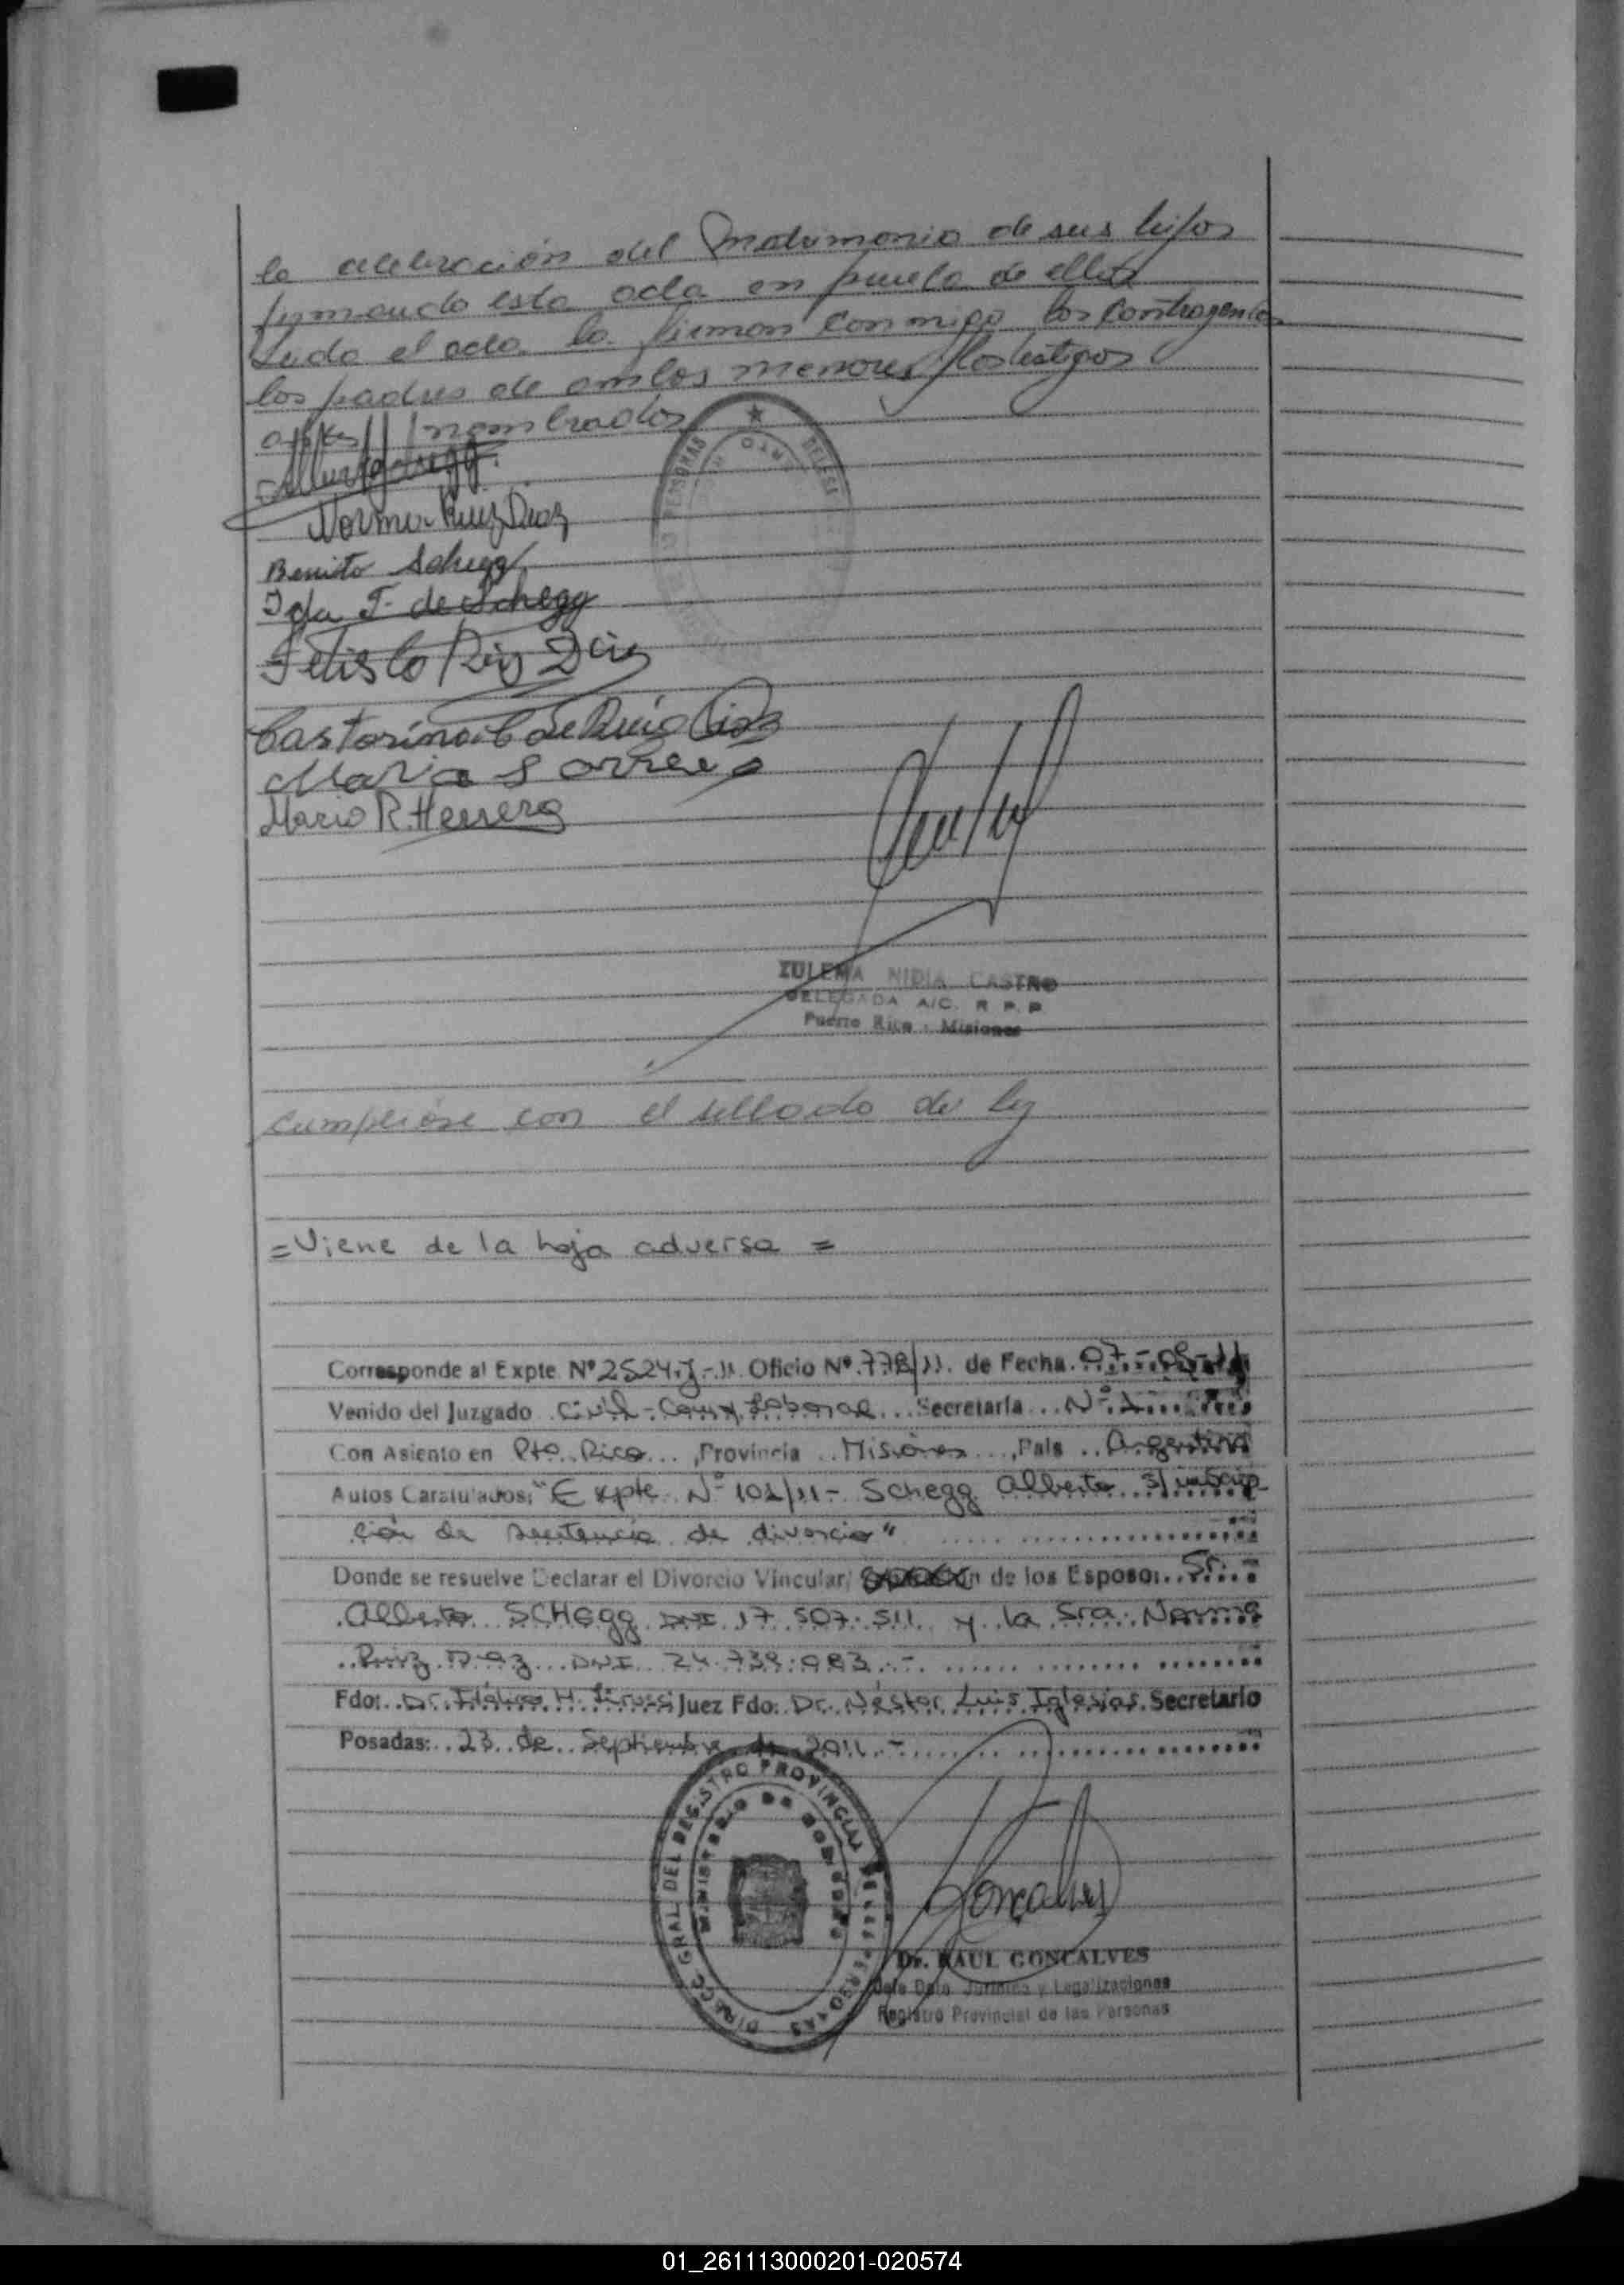 la celebración del Matrimonio de sus hijos
firmando esta acta en prueba de ello
Leida el acta la firman conmigo los contrayentes
los padres de ambos menores y los testigos
nombrados
Norma Ruiz Diaz
Benito Schegg
Ida F. de Schegg
Ruiz Diaz
Castorina C de Ruiz Diaz
Maria
Mario R. Herrera
ZULEMA NIDIA CASTRO
DELEGADA A/C. R P. P.
Puerto Rico - Misiones
Cumpliose con el sellado de ley
= Viene de la hoja adversa =
Corresponde al Expte Nº 2524-J-11 Oficio Nº 778/11. de Fecha. 07-09-11
Venido del Juzgado Civil-Com y Laboral Secretaría Nº 1
Con Asiento en Pto. Rico, Provincia Misiones, País Argentina
Autos Caratulados; "Expte. Nº 101/11 - Schegg Alberto s/ inscrip-
ción de sentencia de divorcio"
Donde se resuelve Declarar el Divorcio Vincular/ de los Esposo: Sr.
Alberto SCHEgg DNI 17.507.511 y la Sra. Norma
Ruiz Diaz DNI 24.738.983.-
Fdo: Dr. H. Juez Fdo: Dr. Néstor Luis Iglesias. Secretario
Posadas: 23 de Septiembre de 2011.-
DIRECC. GRAL. DEL REGISTRO PROVINCIAL DE LAS PERSONAS
MINISTERIO DE GOBIERNO
Goncalves
Dr. RAUL GONCALVES
Jefe Dpto. Jurídico y Legalizaciones
Registro Provincial de las Personas
01_261113000201-020574